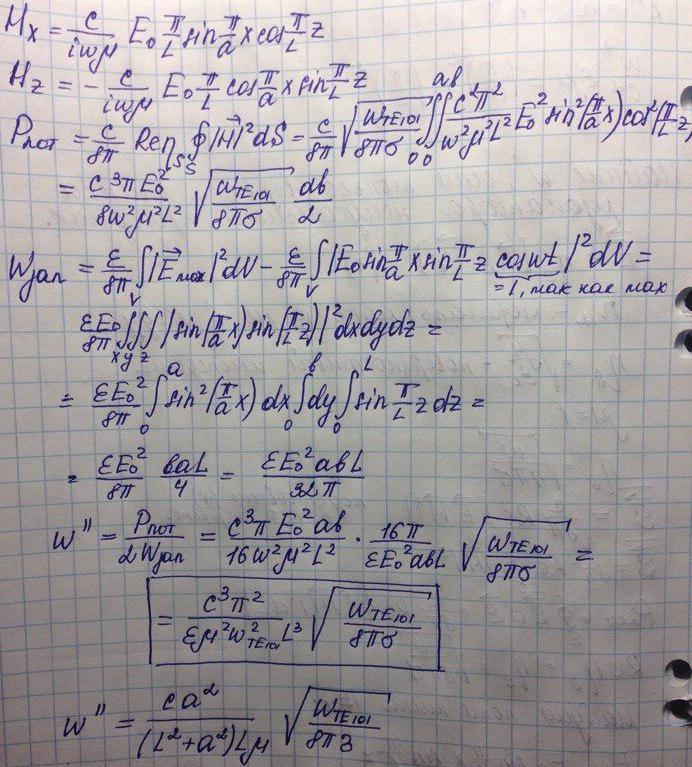 Hx = c/(iωμ) E₀ π/L sin π/a x cos π/L z
Hz = - c/(iωμ) E₀ π/L cos π/a x sin π/L z
Pпот = c/8π Re η ∮ |H⃗|² dS = c/8π √(ω_TE101/8πσ) ∬ c²π²/(ω²μ²L²) E₀² sin²(π/a x) cos²(π/L z)
= c³πE₀²/(8ω²μ²L²) √(ω_TE101/8πσ) ab/2
Wзап = ε/8π ∫ |E⃗max|² dV - ε/8π ∫ |E₀ sin π/a x sin π/L z cos ωt|² dV =
= 1, так как max
εE₀/8π ∭ |sin(π/a x) sin(π/L z)|² dx dy dz =
= εE₀²/8π ∫₀ᵃ sin²(π/a x) dx ∫₀ᵇ dy ∫₀ᴸ sin π/L z dz =
= εE₀²/8π baL/4 = εE₀²abL/32π
ω'' = Pпот/2Wзап = c³πE₀²ab/(16ω²μ²L²) · 16π/(εE₀²abL) √(ω_TE101/8πσ) =
= c³π²/(εμ²ω²_TE101 L³) √(ω_TE101/8πσ)
ω'' = ca²/((L²+a²)Lμ) √(ω_TE101/8π3)